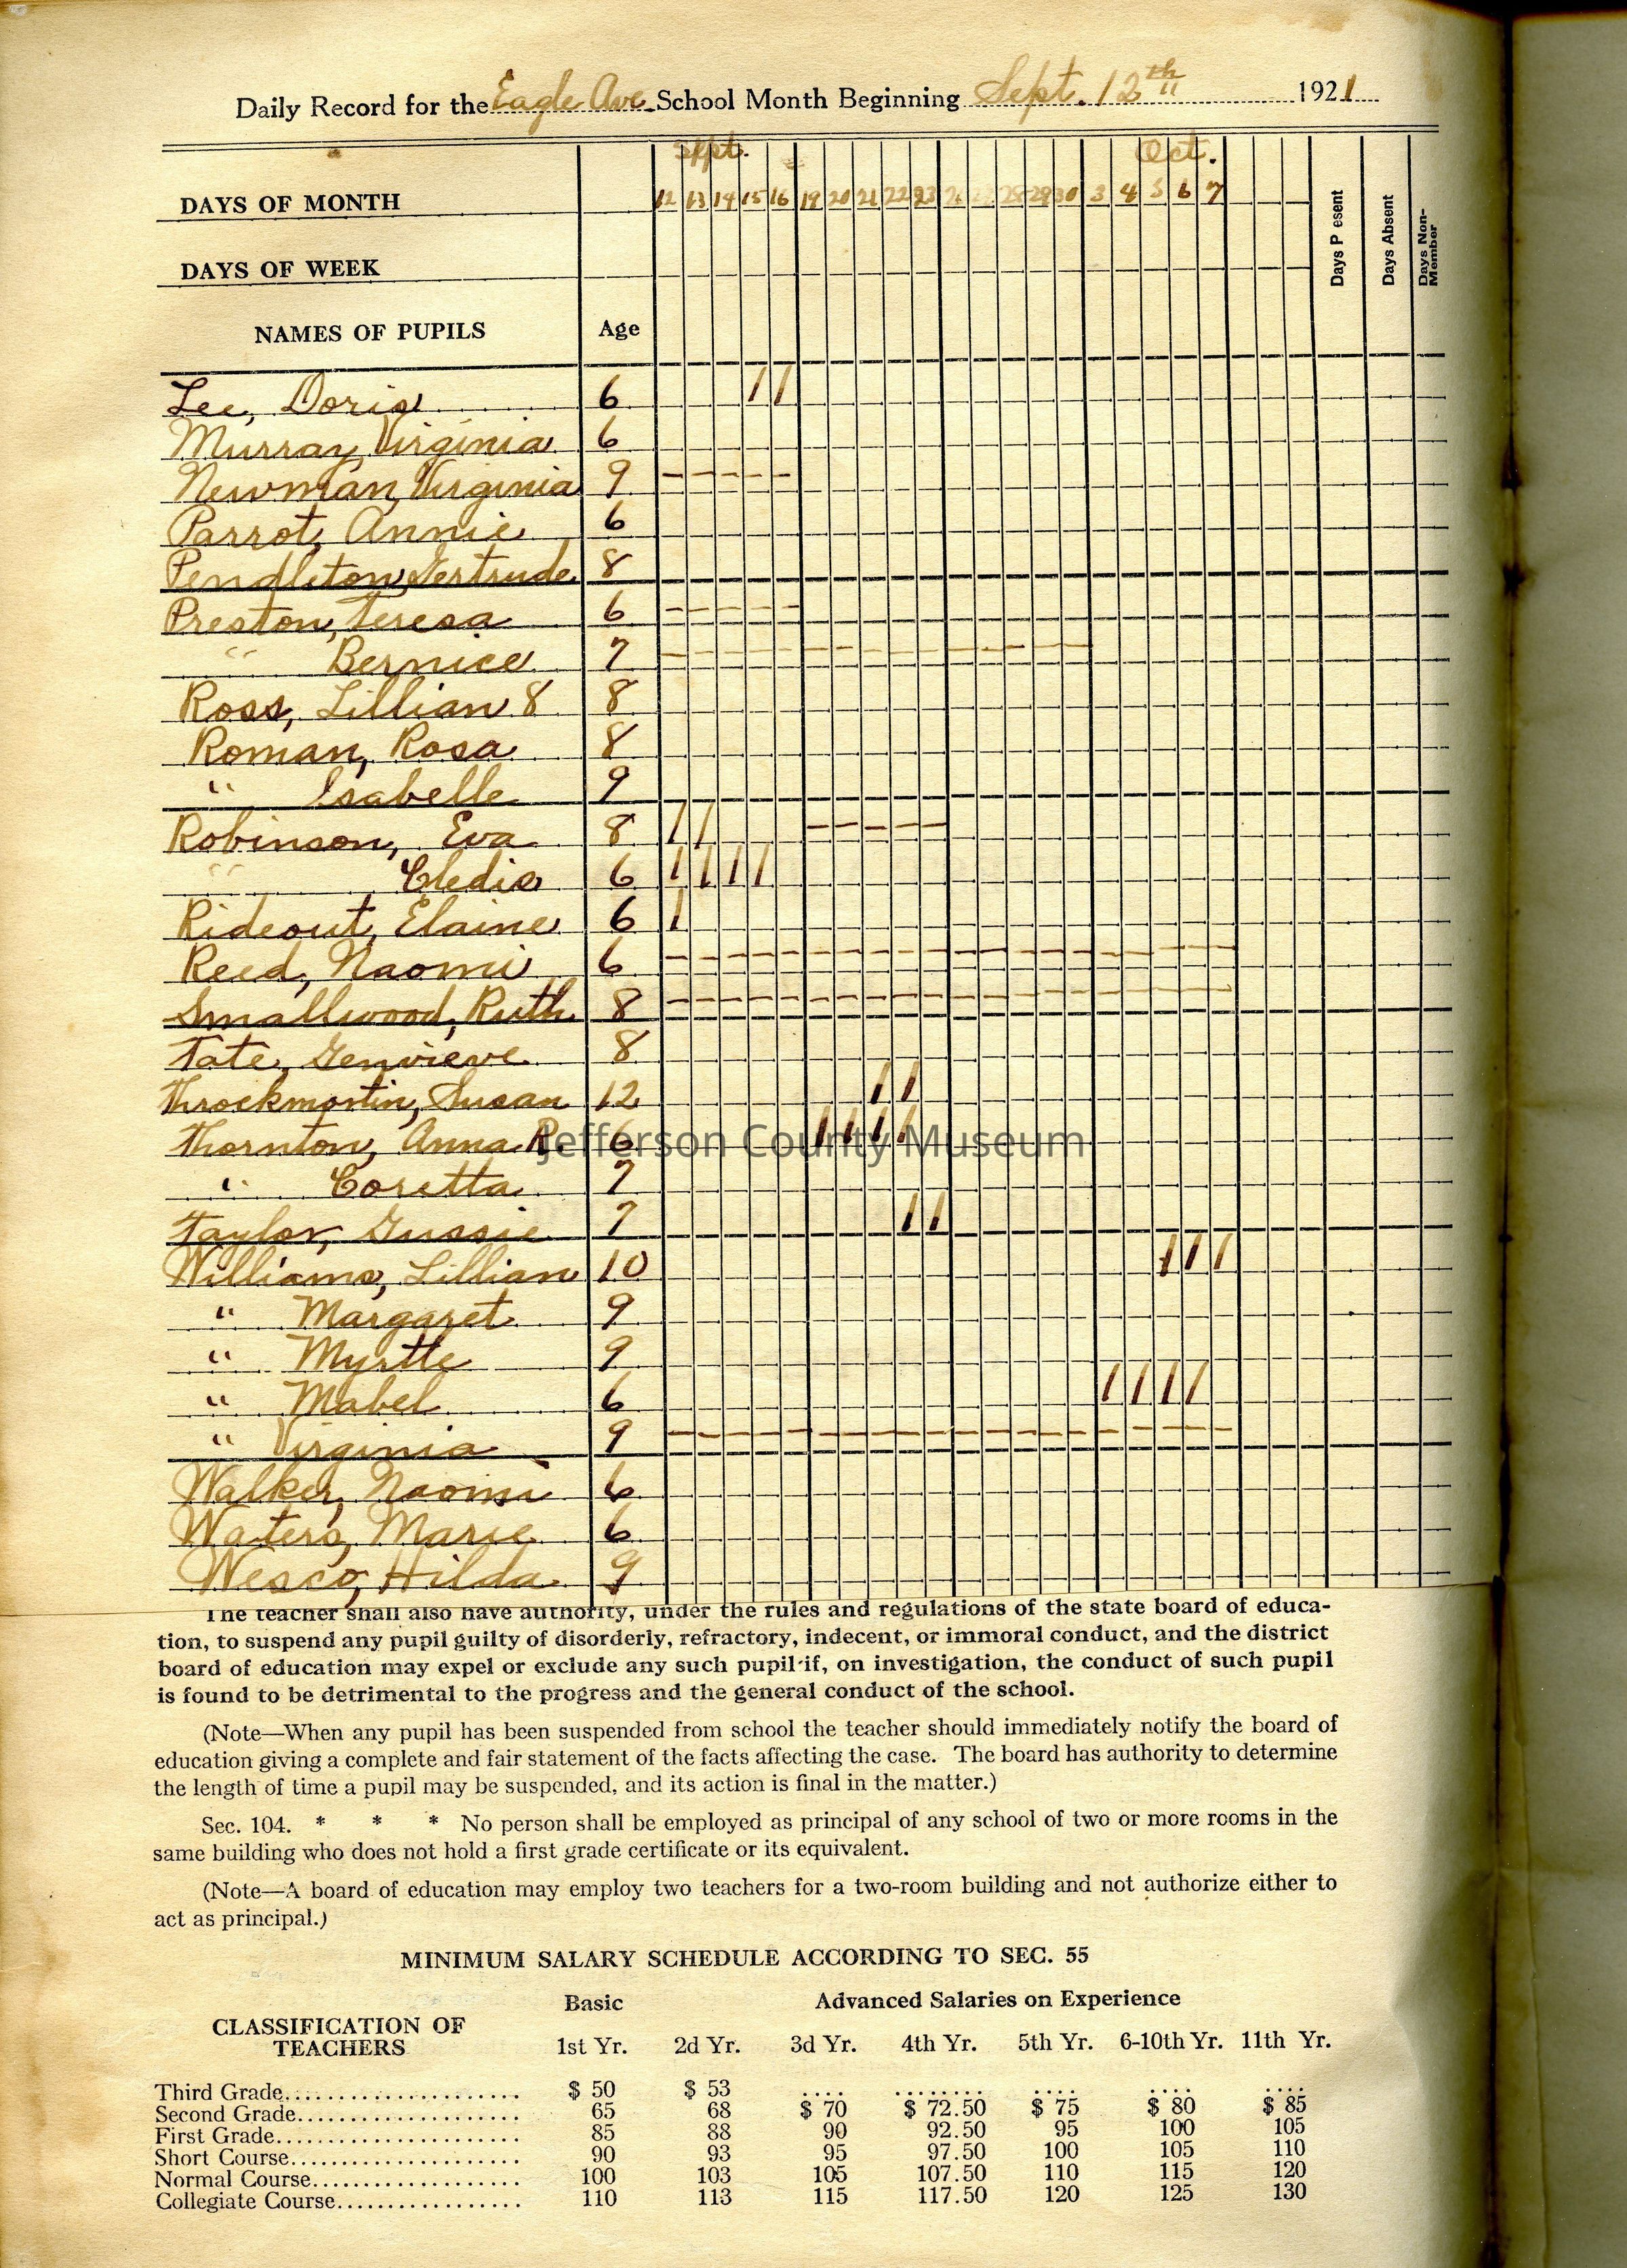 Daily Record for the Eagle Ave. School Month Beginning Sept. 12th 1921
Sept. Oct.
DAYS OF MONTH 12 13 14 15 16 19 20 21 22 23 26 27 28 29 30 3 4 5 6 7 Days P esent Days Absent Days Non-Member
DAYS OF WEEK
NAMES OF PUPILS Age
Lee, Doris 6 / /
Murray, Virginia 6
Newman, Virginia 9 – – – – –
Parrot, Annie 6
Pendleton, Gertrude 8
Preston, Teresa 6 – – – – –
" Bernice 7 – – – – – – – – – – – – – – –
Ross, Lillian 8 8
Roman, Rosa 8
" Isabelle 9
Robinson, Eva 8 / / – – – – –
" Cledis 6 / / / /
Rideout, Elaine 6 /
Reed, Naomi 6 – – – – – – – – – – – – – – – – – – – –
Smallwood, Ruth 8 – – – – – – – – – – – – – – – – – – – –
Tate, Genvieve 8
Throckmortin, Susan 12 / /
Thornton, Anna R. 6 / / / /
Jefferson County Museum
" Coretta 7
Taylor, Gussie 7 / /
Williams, Lillian 10 / / /
" Margaret 9
" Myrtle 9
" Mabel 6 / / / /
" Virginia 9 – – – – – – – – – – – – – – – – – – – –
Walker, Naomi 6
Waters, Marie 6
Wesco, Hilda 9
The teacher shall also have authority, under the rules and regulations of the state board of educa-
tion, to suspend any pupil guilty of disorderly, refractory, indecent, or immoral conduct, and the district
board of education may expel or exclude any such pupil if, on investigation, the conduct of such pupil
is found to be detrimental to the progress and the general conduct of the school.
(Note—When any pupil has been suspended from school the teacher should immediately notify the board of
education giving a complete and fair statement of the facts affecting the case. The board has authority to determine
the length of time a pupil may be suspended, and its action is final in the matter.)
Sec. 104. * * * No person shall be employed as principal of any school of two or more rooms in the
same building who does not hold a first grade certificate or its equivalent.
(Note—A board of education may employ two teachers for a two-room building and not authorize either to
act as principal.)
MINIMUM SALARY SCHEDULE ACCORDING TO SEC. 55
Basic Advanced Salaries on Experience
CLASSIFICATION OF
TEACHERS 1st Yr. 2d Yr. 3d Yr. 4th Yr. 5th Yr. 6-10th Yr. 11th Yr.
Third Grade...................... $ 50 $ 53 .... ........ .... .... ....
Second Grade..................... 65 68 $ 70 $ 72.50 $ 75 $ 80 $ 85
First Grade...................... 85 88 90 92.50 95 100 105
Short Course...................... 90 93 95 97.50 100 105 110
Normal Course.................... 100 103 105 107.50 110 115 120
Collegiate Course................. 110 113 115 117.50 120 125 130